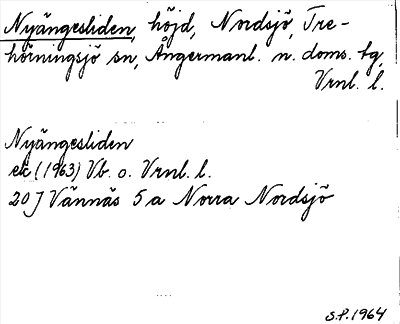 Nyängesliden, höjd, Nordsjö, Tre-
hörningsjö sn, Ångermanl. n. doms. tg,
Vrnl. l.
Nyängesliden
ek (1963) Vb. o. Vrnl. l.
20 J Vännäs 5 a Norra Nordsjö
S.P. 1964